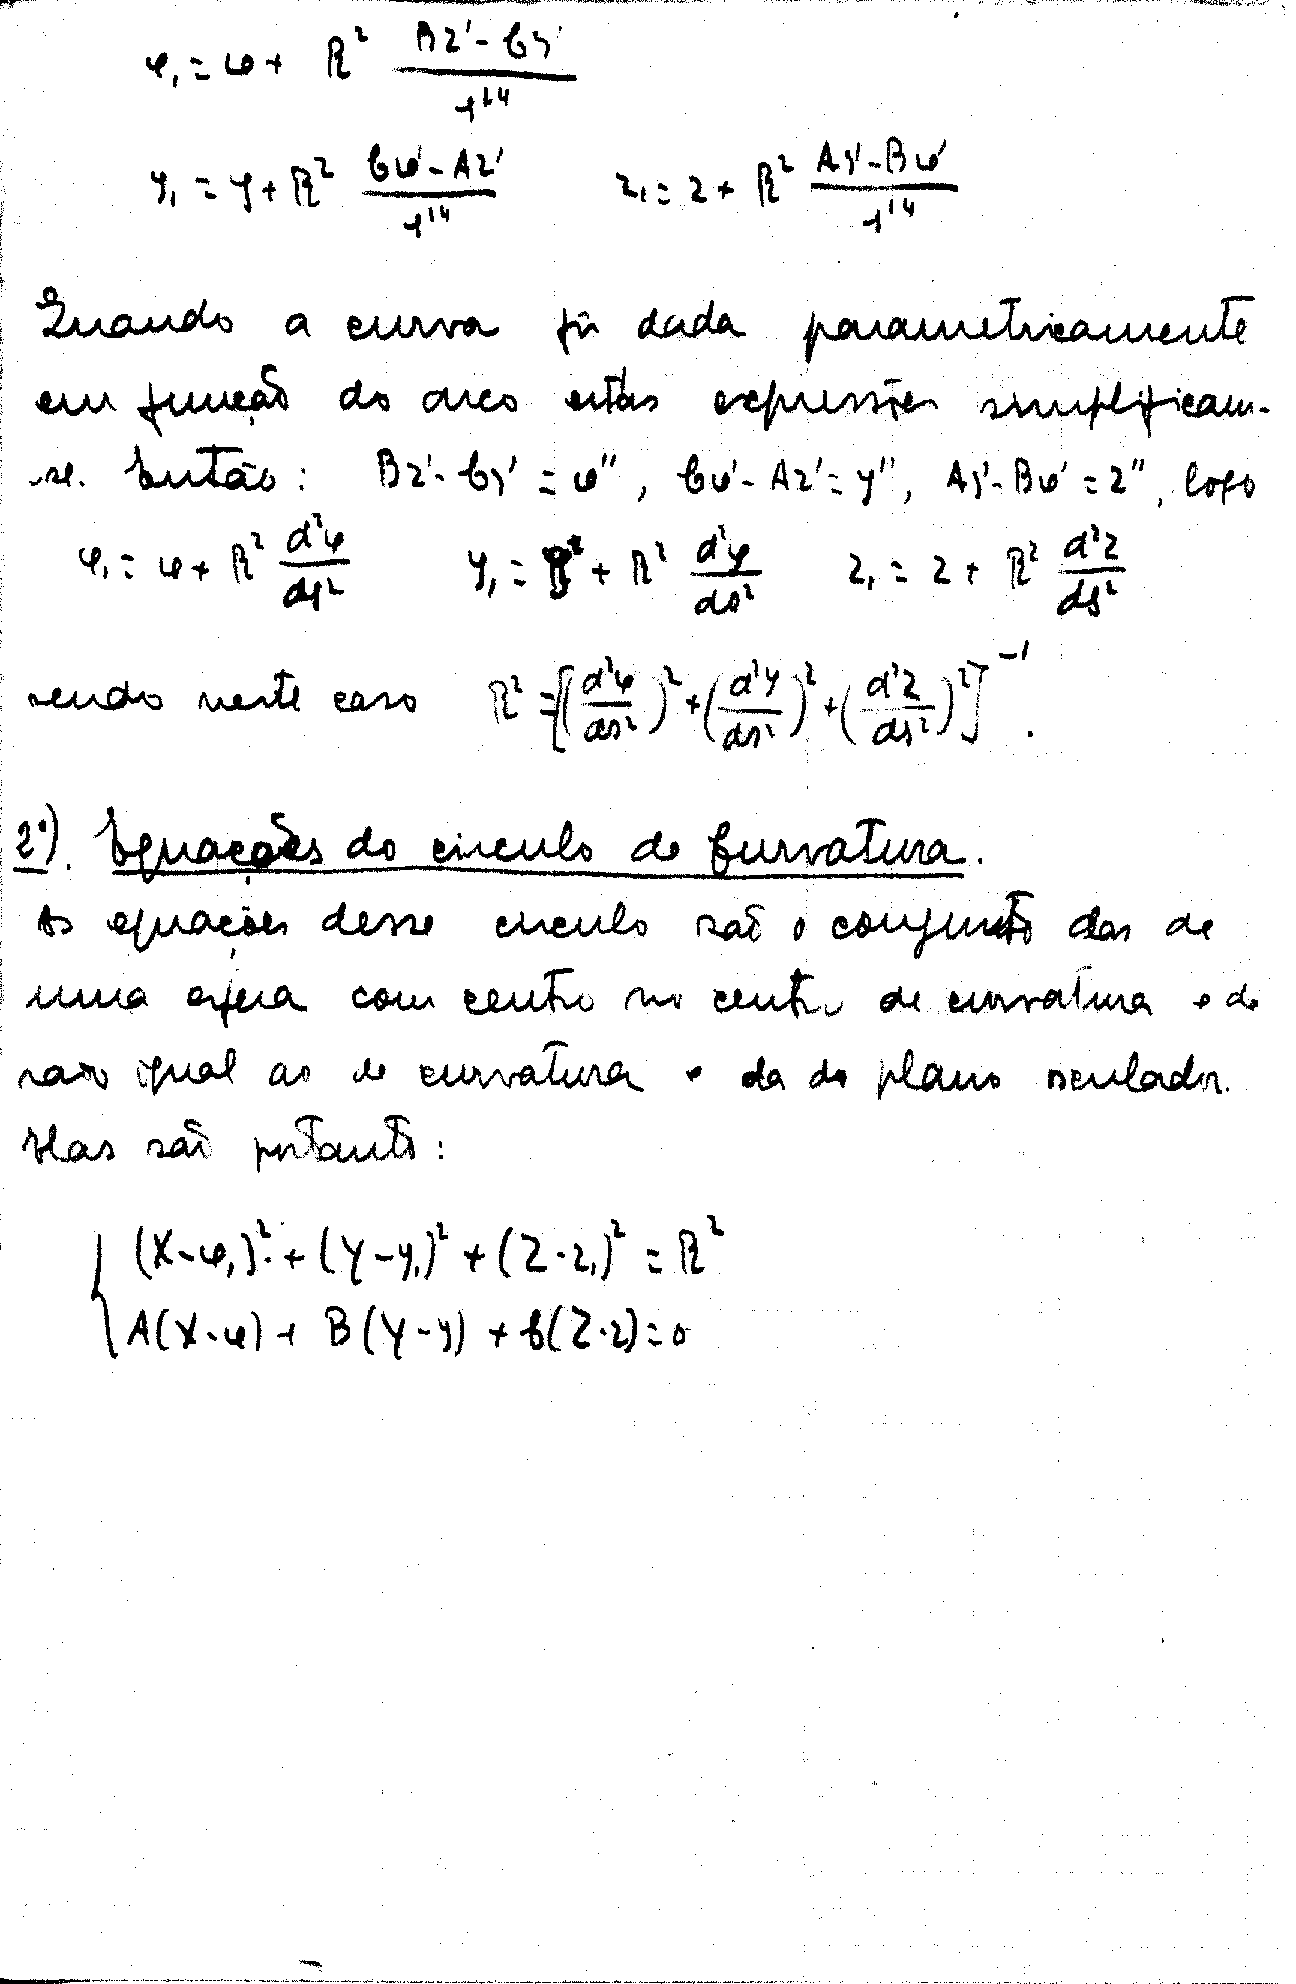 x₁ = x + R² (Bz' - Cy') / s'⁴
y₁ = y + R² (Cx' - Az') / s'⁴  z₁ = z + R² (Ay' - Bx') / s'⁴
Quando a curva fôr dada parametricamente
em função do arco estas expressões simplificam-
se. Então: Bz' - Cy' = x'', Cx' - Az' = y'', Ay' - Bx' = z'', logo
x₁ = x + R² d²x/ds²  y₁ = y + R² d²y/ds²  z₁ = z + R² d²z/ds²
sendo neste caso R² = [(d²x/ds²)² + (d²y/ds²)² + (d²z/ds²)²]⁻¹.
2º). Equações do circulo de Curvatura.
As equações desse circulo são o conjunto das de
uma esfera com centro no centro de curvatura e de
raio igual ao de curvatura e da do plano osculador.
Elas são portanto:
(X - x₁)² + (Y - y₁)² + (Z - z₁)² = R²
A(X - x) + B(Y - y) + C(Z - z) = 0